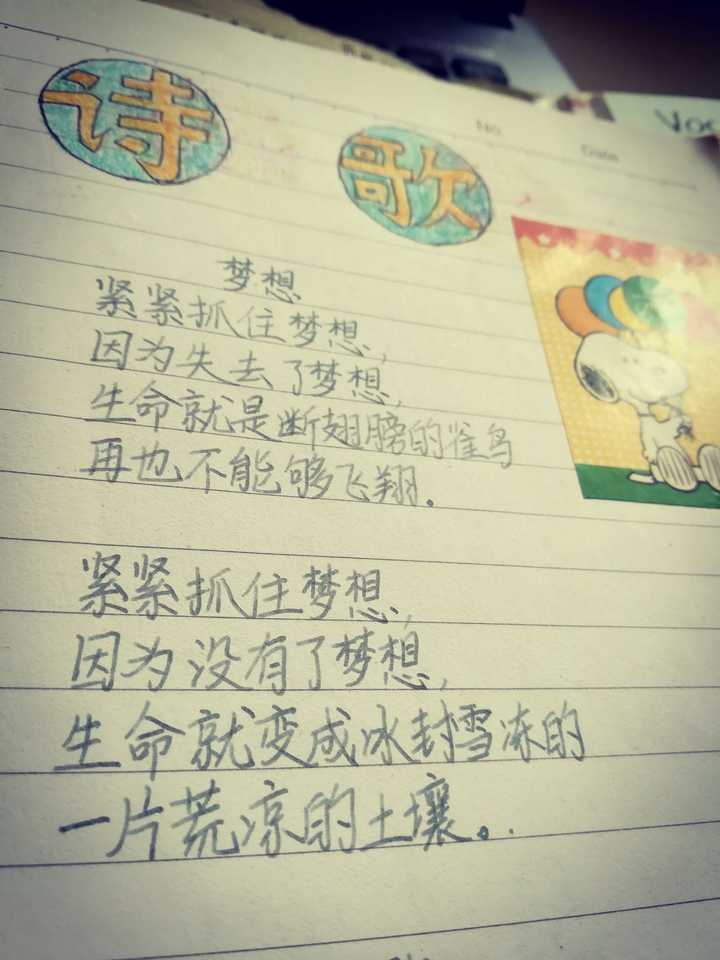 诗 歌
No.
Date
Voc
梦想
紧紧抓住梦想,
因为失去了梦想,
生命就是断翅膀的雀鸟
再也不能够飞翔.
紧紧抓住梦想,
因为没有了梦想,
生命就变成冰封雪冻的
一片荒凉的土壤。.